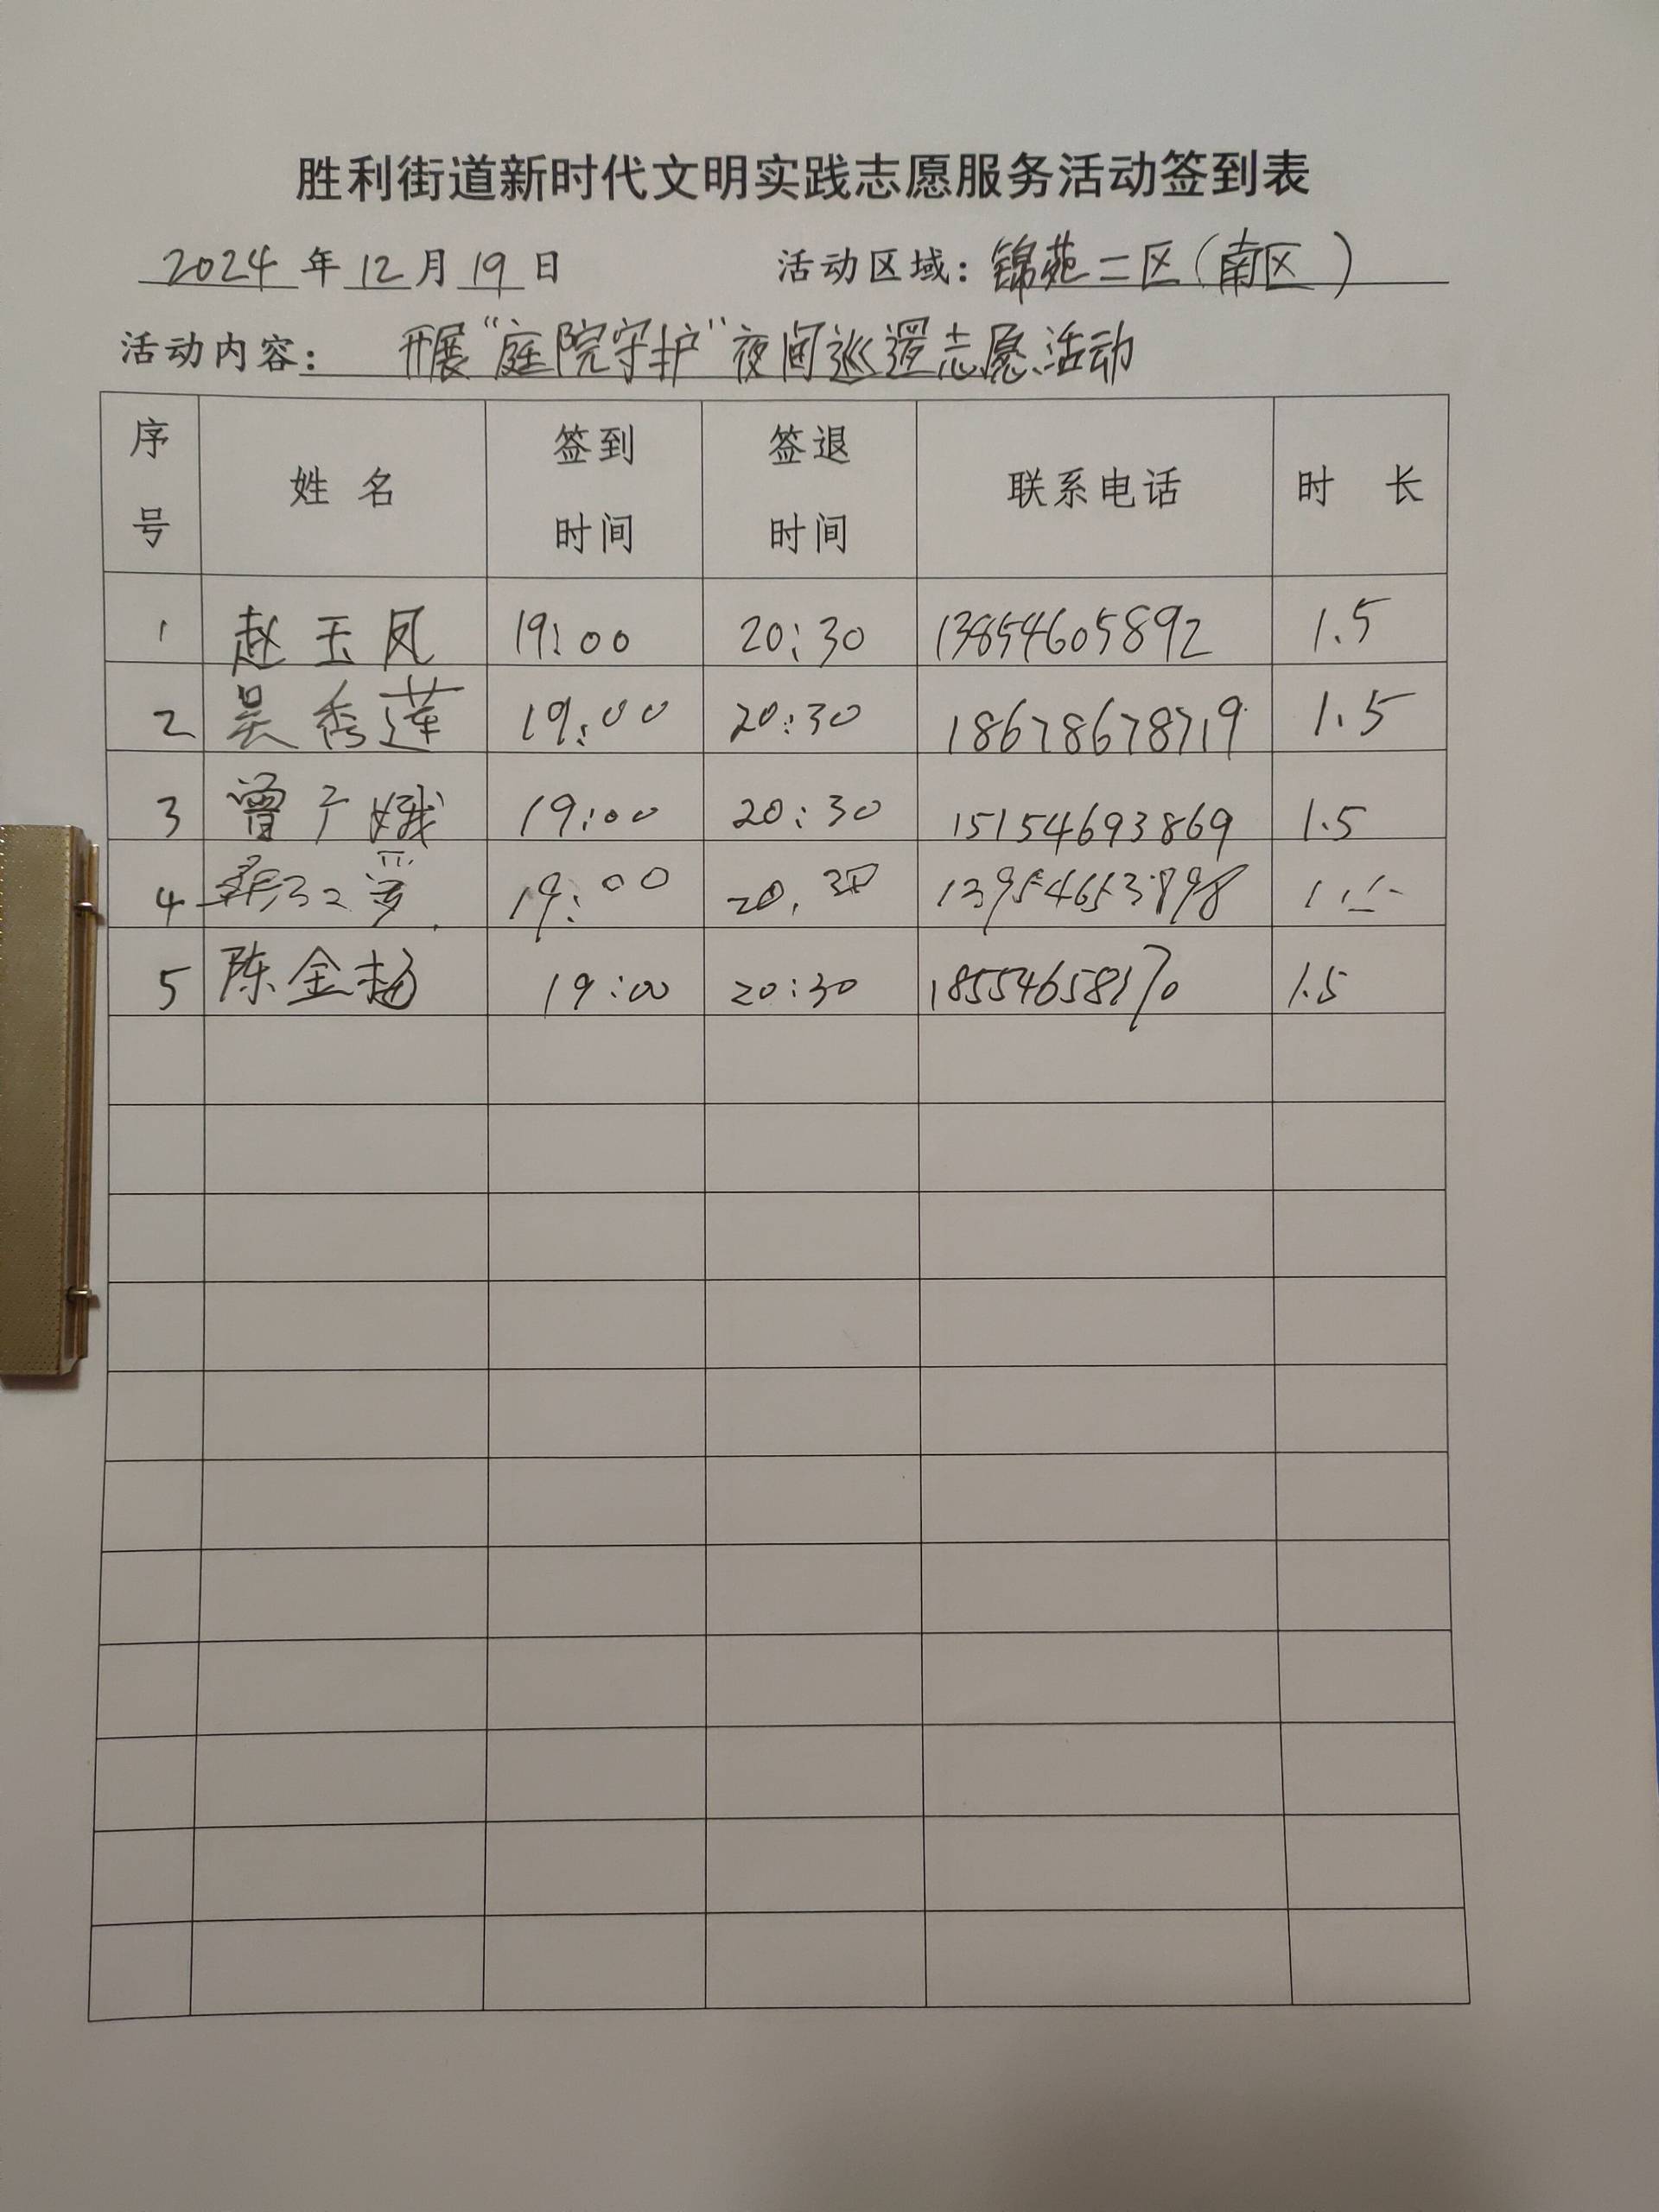 胜利街道新时代文明实践志愿服务活动签到表
2024 年 12 月 19 日 活动区域：锦苑二区（南区）
活动内容：开展“庭院守护”夜间巡逻志愿活动
序号 姓名 签到时间 签退时间 联系电话 时长
1 赵玉凤 19:00 20:30 13854605892 1.5
2 吴秀莲 19:00 20:30 18678678719 1.5
3 曾广娥 19:00 20:30 15154693869 1.5
4 19:00 20:30 13954653898 1.5
5 陈金杨 19:00 20:30 1.5